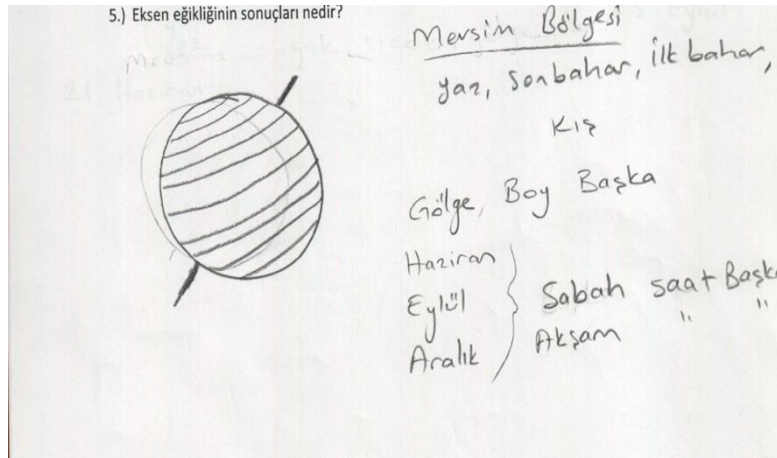 5.) Eksen eğikliğinin sonuçları nedir?
Mevsim Bölgesi
Yaz, Sonbahar, ilkbahar,
Kış
Gölge, Boy Başka
Haziran
Eylül
Aralık
Sabah saat Başk
Akşam " "